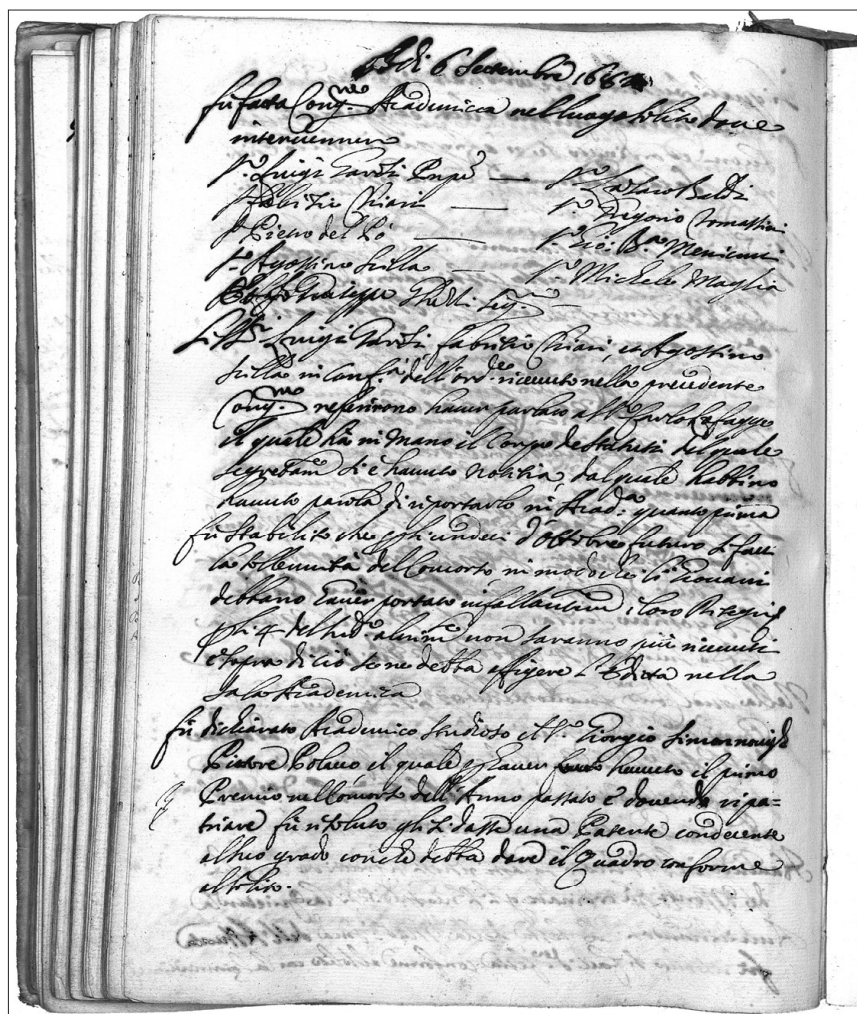 Adi 6 Settembre 168
fù fatta Cong.ne Academica nel luogo solito dove
intervennero
S.r Luigi Garzi Pnpe — S.r Lazaro Baldi
S.r Fabritio Chiari — S.r
S.r Pietro del Pò — S.r Gio: B.a Menicucci
S.r Agostino Scilla — S.r Michele Maglia
Giuseppe Ghezzi Seg.rio
Li SS.ri Luigi Garzi, Fabritio Chiari, et Agostino
Scilla in conf.à dell'ord.e ricevuto nella precedente
Cong.ne referirono haver parlato al S.r Carlo
il quale hà in mano il Corpo de Statuti del quale
segretam.e si è havuto notitia, dal quale habbino
havuto parola di riportarlo in Acad.a quanto prima
fù stabilito che p gli undeci d'Ottobre futuro si facci
la sollennità del Concorso in modo che li Giovani
debbano haver portato infallantem.e i loro Disegni
p li 4 del sud.o altrim.e non saranno più ricevuti
e sopra di ciò se ne debba affigere l'Editto nella
Sala Academica
fù dichiarato Academico studioso il S.r Giorgio
Pittore Polacco il quale p haver havuto il primo
Premio nell Concorso dell'Anno passato e dovendo ripa=
triare fù risoluto gli si dasse una Patente condecente
al suo grado con che debba dare il Quadro conforme
al solito.